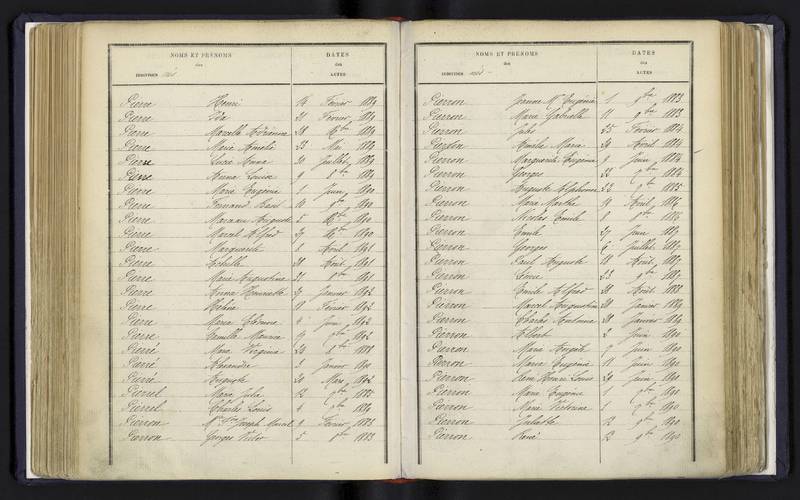 NOMS ET PRÉNOMS
des
INDIVIDUS nés
DATES
des
ACTES
Pierre Henri 14 Février 1889
Pierre Février 1889
Pierre Marcelle 28 1889
Pierre Marie Amélie 23 Mai 1889
Pierre Anna Juillet 1889
Pierre Anna Louise 9 8bre 1889
Pierre Marie Eugénie 1 Juin 1890
Pierre Fernand 9bre 1890
Pierre Auguste 5 Xbre 1890
Pierre Marcel Alfred 27 Xbre 1890
Pierre Marguerite 8 Avril 1891
Pierre Achille Août 1891
Pierre Marie Augustine 1891
Pierre Anna Henriette 27 Janvier 1892
Pierre Hélène Février 1892
Pierre Marie 4 Juin 1892
Pierre Camille Maurice 1892
Pierré Marie Virginie 24 8bre 1888
Pierré Alexandre 3 Janvier 1890
Pierré Auguste 20 Mars 1892
Pierrel Marie Julie 12 9bre 1882
Pierrel Charles Louis 4 1884
Pierron Joseph Marcel 9 Février 1883
Pierron Georges Victor 5 8bre 1883
NOMS ET PRÉNOMS
des
INDIVIDUS nés
DATES
des
ACTES
Pierron Jeanne Mie Eugénie 1 9bre 1883
Pierron Marie Gabrielle 11 9bre 1883
Pierron Jules 25 Février 1884
Pierron Amélie Marie 29 Avril 1884
Pierron Marguerite Eugénie 9 Juin 1884
Pierron Georges 22 9bre 1884
Pierron Auguste Alphonse 22 9bre 1885
Pierron Marie Marthe 14 Avril 1886
Pierron Nicolas Emile 8 8bre 1886
Pierron Emile 27 Juin 1887
Pierron Georges 6 Juillet 1887
Pierron Paul Auguste 18 Août 1887
Pierron 23 1887
Pierron Emile Alfred 28 Août 1888
Pierron Marcel Augustin 28 Janvier 1889
Pierron Charles Antoine 28 Janvier 1889
Pierron Albert 2 Juin 1890
Pierron Marie Angèle 7 Juin 1890
Pierron Marie Eugénie 11 Juin 1890
Pierron Henri Louis 29 Juin 1890
Pierron Marie Eugénie 1 9bre 1890
Pierron Marie Victorine 7 9bre 1890
Pierron Juliette 12 9bre 1890
Pierron René 12 9bre 1890